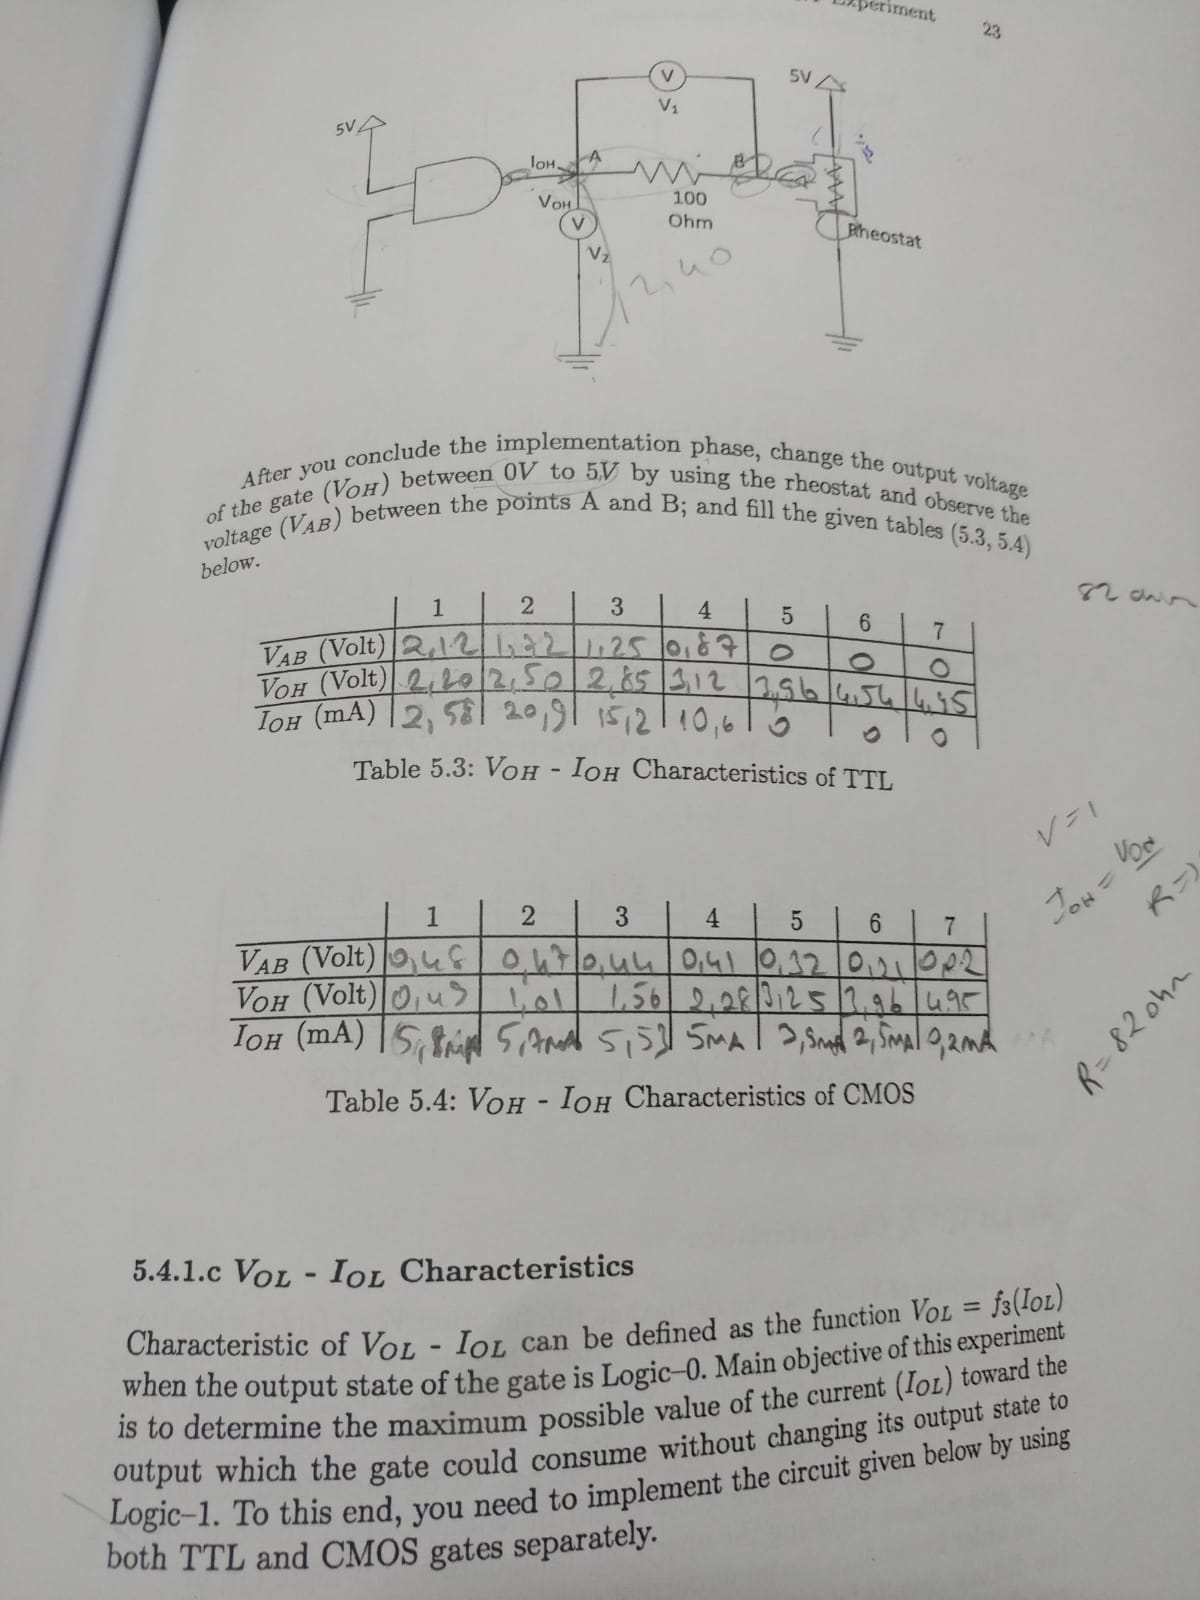 Experiment 23
5V
V
V1
5V
IOH
A
B
VOH
V
V2
100
Ohm
Rheostat
2,40
After you conclude the implementation phase, change the output voltage
of the gate (VOH) between 0V to 5V by using the rheostat and observe the
voltage (VAB) between the points A and B; and fill the given tables (5.3, 5.4)
below.
82 ohm
1 2 3 4 5 6 7
VAB (Volt) 2,12 1,72 1,25 0,87 0 0 0
VOH (Volt) 2,20 2,50 2,85 3,12 3,96 4,54 4,95
IOH (mA) 2,58 20,9 15,2 10,6 0 0 0
Table 5.3: VOH - IOH Characteristics of TTL
V=1
IOH = VOH
R=)
1 2 3 4 5 6 7
VAB (Volt) 0,48 0,47 0,44 0,41 0,32 0,21 0,02
VOH (Volt) 0,49 1,01 1,56 2,28 3,25 3,96 4.95
IOH (mA) 5,8mA 5,7mA 5,53 5mA 3,9mA 2,5mA 0,2mA
R=82ohm
Table 5.4: VOH - IOH Characteristics of CMOS
5.4.1.c VOL - IOL Characteristics
Characteristic of VOL - IOL can be defined as the function VOL = f3(IOL)
when the output state of the gate is Logic–0. Main objective of this experiment
is to determine the maximum possible value of the current (IOL) toward the
output which the gate could consume without changing its output state to
Logic–1. To this end, you need to implement the circuit given below by using
both TTL and CMOS gates separately.